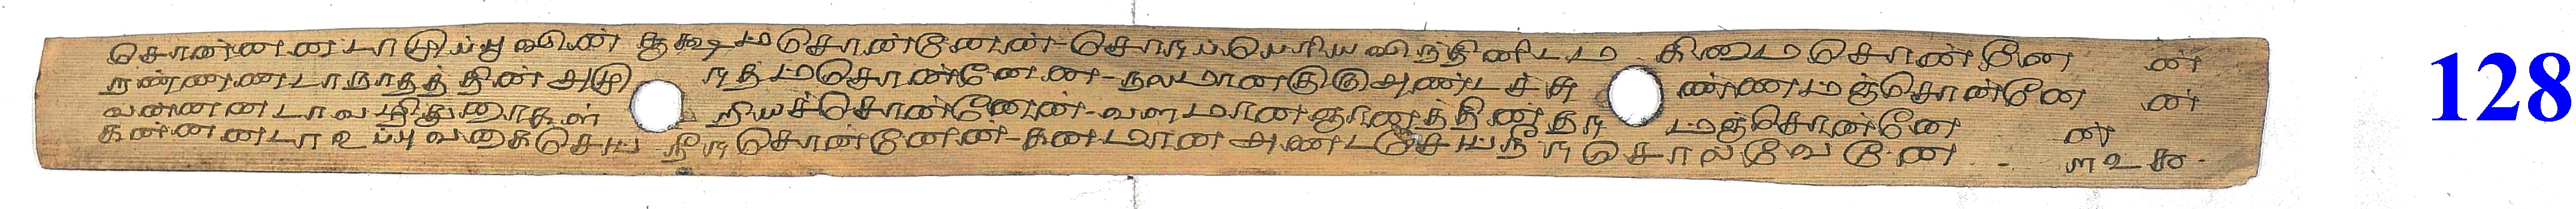 சொன்னடா முப்பூவின் சூக்ஷமசொன்னேன்-சொரூப பெரிய விந்தினிடம கிடைமசொன்னேன்
நண்ணடா நாதத்தின் அமுரிதமசொன்னேன-நலமான குருஅண்டச்சுண்ணமஞ்சொன்னேன்
வன்னடா வழிதுறைகள் றியச்சொன்னேன்-வளமான ஞானத்தின்தரமஞ்சொன்னேன்
கன்னடா உப்புவகைசெயநீருசொன்னேன்-கனமான அண்டசெயநீருசொல்வேனே -
௱௨௰௮
128